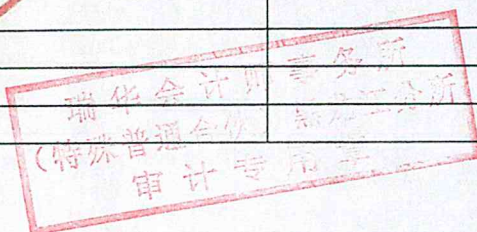 瑞华会计师事务所
(特殊普通合伙)黑龙江分所
审计专用章